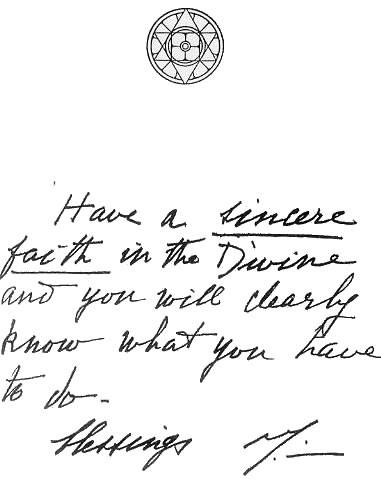 Have a sincere
faith in the Divine
and you will clearly
know what you have
to do.
blessings